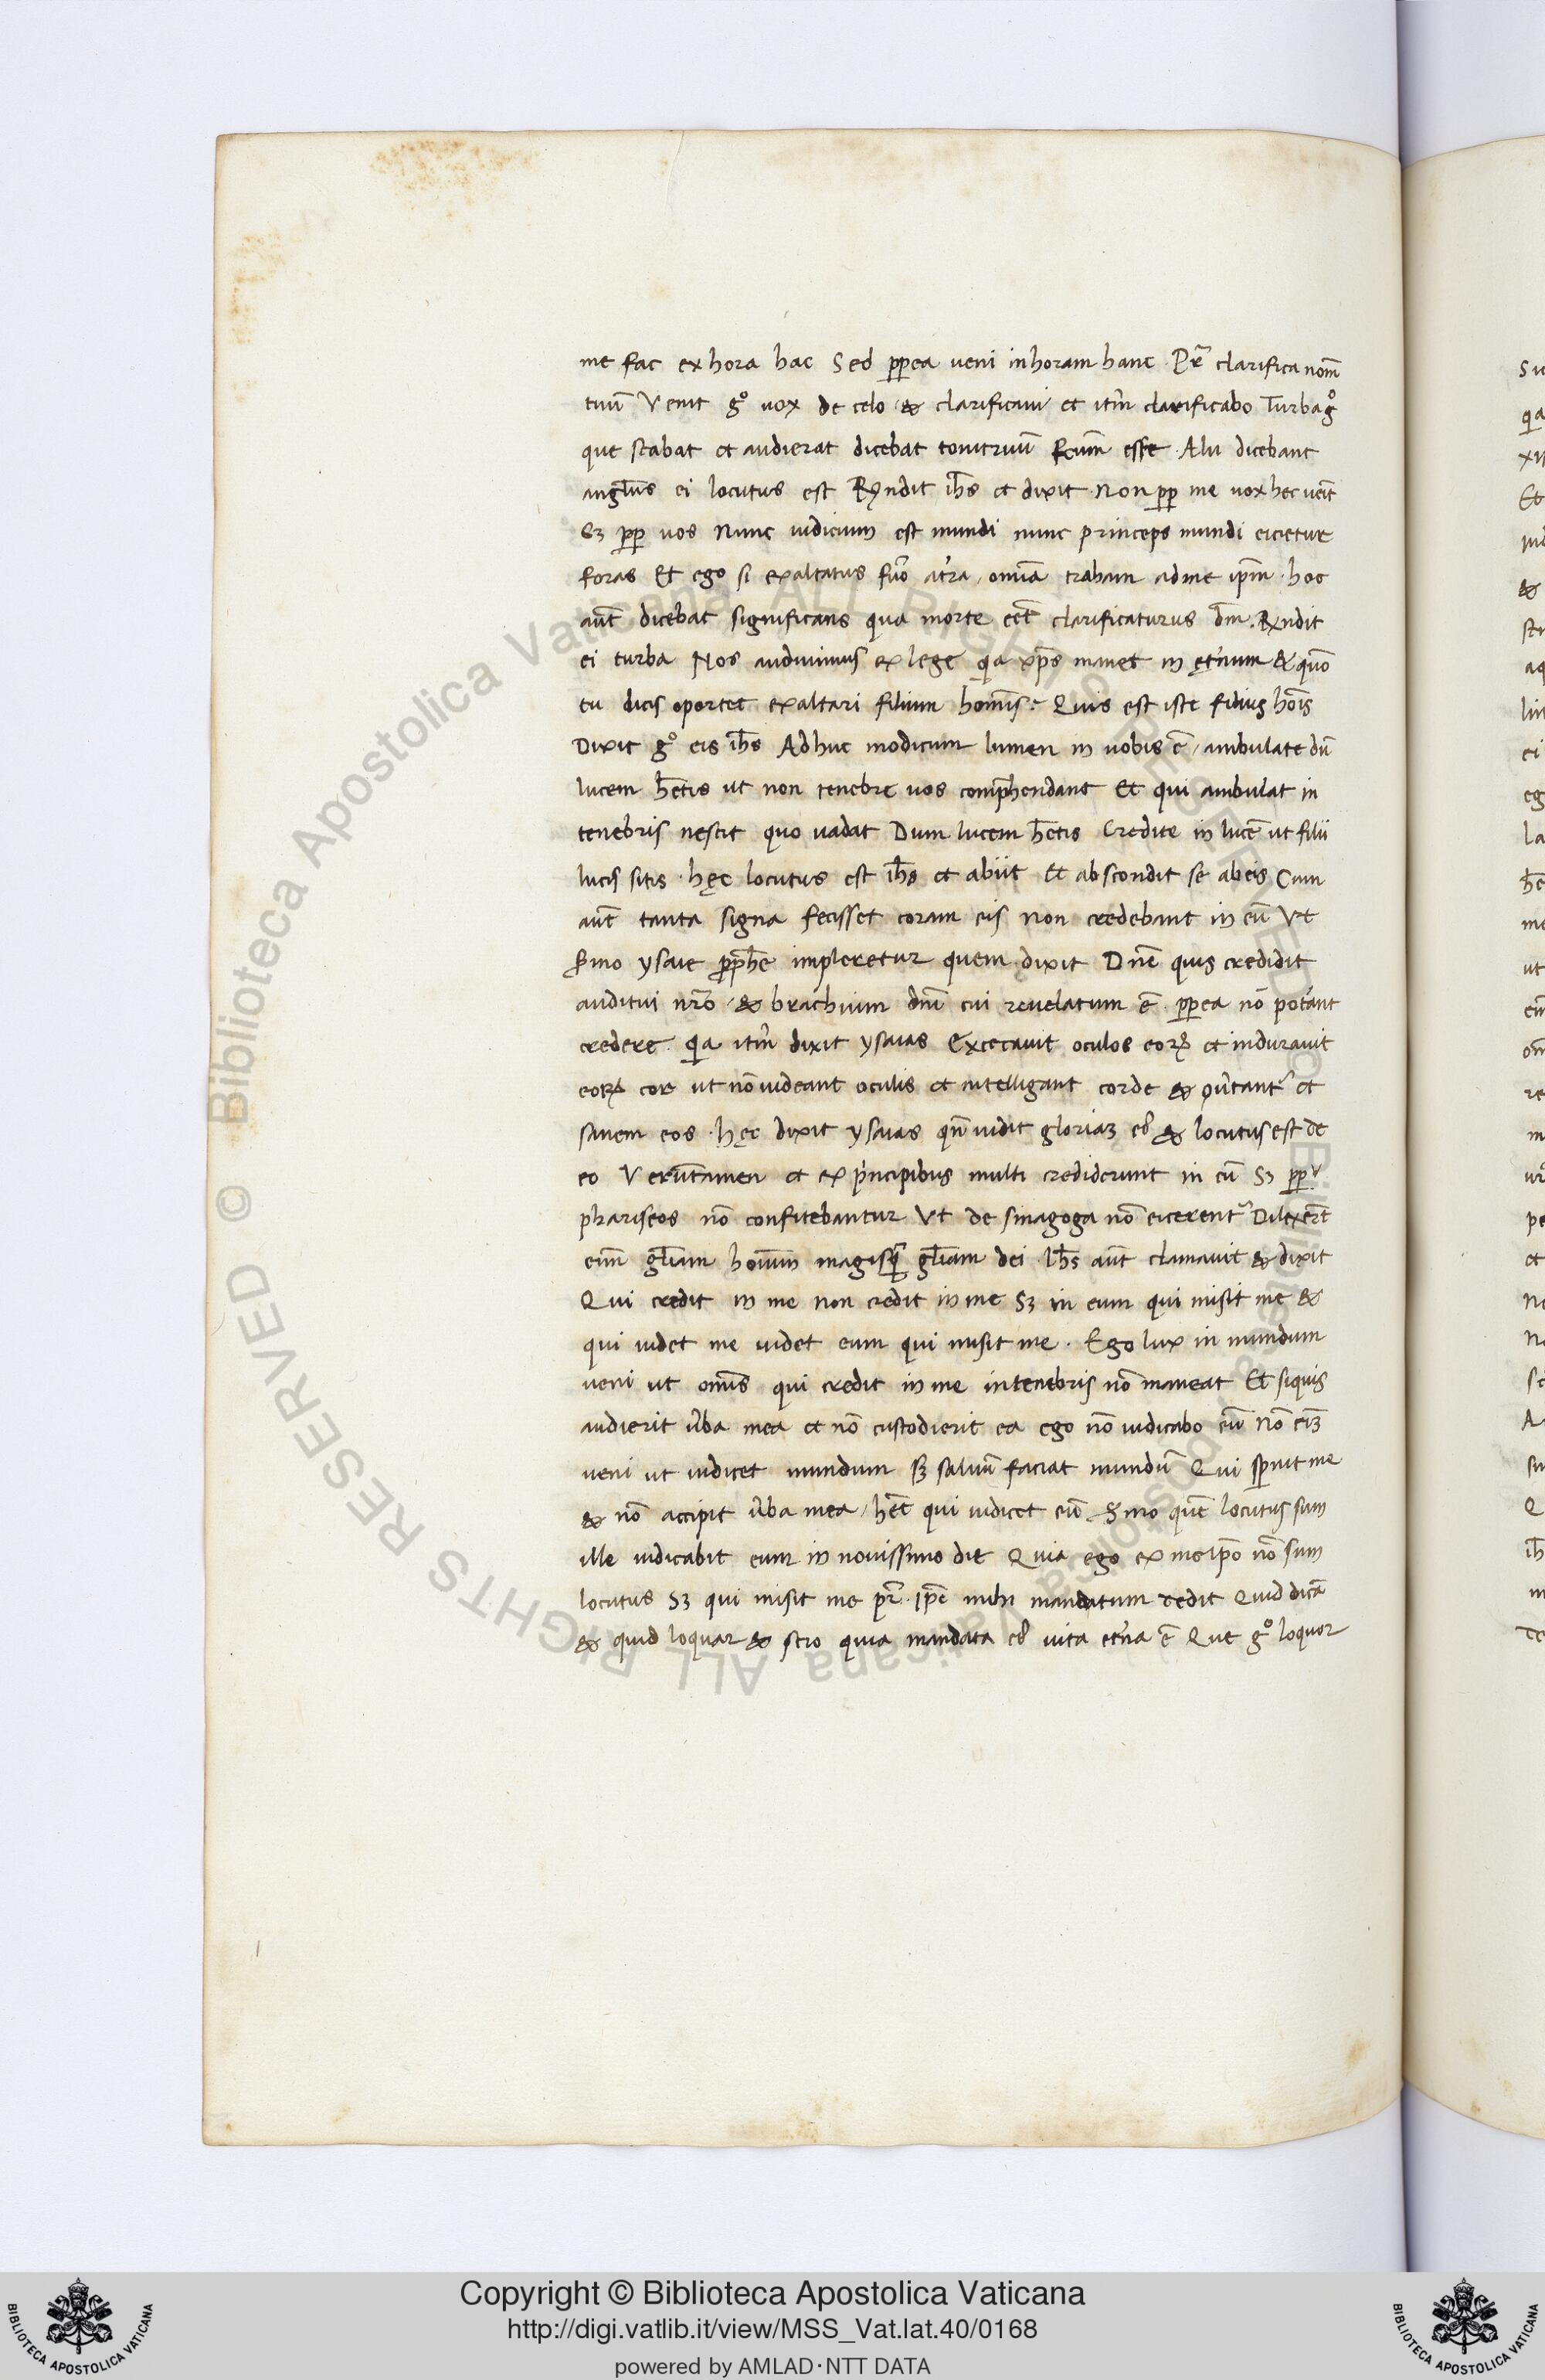 me fac ex hora hac Sed pp̱ea veni in horam hanc · Pr̄ clarifica nom̄
tuū Venit g° vox de celo & clarificavi et itm̄ clarificabo Turba g°
que stabat et audierat dicebat tonitruū fcūm esse · Alii dicebant
angl̄us ei locutus est Rn̄dit ih̄s et dixit Non pp̱ me vox hec veīt
S3 pp̱ vos Nunc iudicium est mundi nunc princeps mundi eicietur
foras Et ego si exaltatus fuo᷑ a t᷑ra, omīa traham ad me ip̄m · hoc
aūt dicebat significans qua morte eēt clarificaturus dm̄. Rn̄dit
ei turba Nos audivimus ex lege qia xp̄s manet in ęt᷑num & quō
tu dicis oportet exaltari filium homīs? Quis est iste filius hoīs
Dixit g° eis ih̄s Adhuc modicum lumen in vobis ē, ambulate dū
lucem h̄etis ut non tenebre vos comp̄hendant Et qui ambulat in
tenebris nescit quo vadat Dum lucem h̄etis Credite in lucē ut filii
lucis sitis · hęc locutus est ih̄s et abiit Et abscondit se ab eis Cum
aūt tanta signa fecisset coram eis non credebant in eū Vt
s̄mo ysaie pp̄he impleretur quem dixit Dn̄e quis credidit
auditui nr̄o, & brachium dn̄i cui revelatum ē · pp̱ea nō pot᷑ant
credere · qia itm̄ dixit ysaias Excecavit oculos eoꝝ et induravit
eoꝝ cor ut nō videant oculis et intelligant corde & ꝯv᷑tant᷑ et
sanem eos · hęc dixit ysaias qn̄ vidit gloria3 ei᷑ & locutus est de
eo Verūtamen et ex p᷑ncipibus multi crediderunt in eū S3 pp̱
phariseos nō confitebantur Vt de sinagoga nō eicerent᷑ Dilexer̄t
eīm gl̄iam homīum magisq̄ gl̄iam dei · Ih̄s aūt clamavit & dixit
Qui credit in me non credit in me S3 in eum qui misit me &
qui videt me videt eum qui misit me · Ego lux in mundum
veni ut omīs qui credit in me in tenebris nō maneat Et siquis
audierit v᷑ba mea et nō custodierit ea ego nō iudicabo eū Nō eīm
veni ut iudicet mundum s3 salvū faciat mundū Qui sp̄nit me
& nō accipit v᷑ba mea, h̄et qui iudicet eū S̄mo quē locutus sum
ille iudicabit eum in novissimo die Quia ego ex me ip̄o nō sum
locutus S3 qui misit me pr̄ · ip̄e mihi mandatum dedit Quid dicā
& quid loquar & scio quia mandata ei᷑ vita et᷑na ē Que g° loquor
Copyright © Biblioteca Apostolica Vaticana
http://digi.vatlib.it/view/MSS_Vat.lat.40/0168
powered by AMLAD·NTT DATA